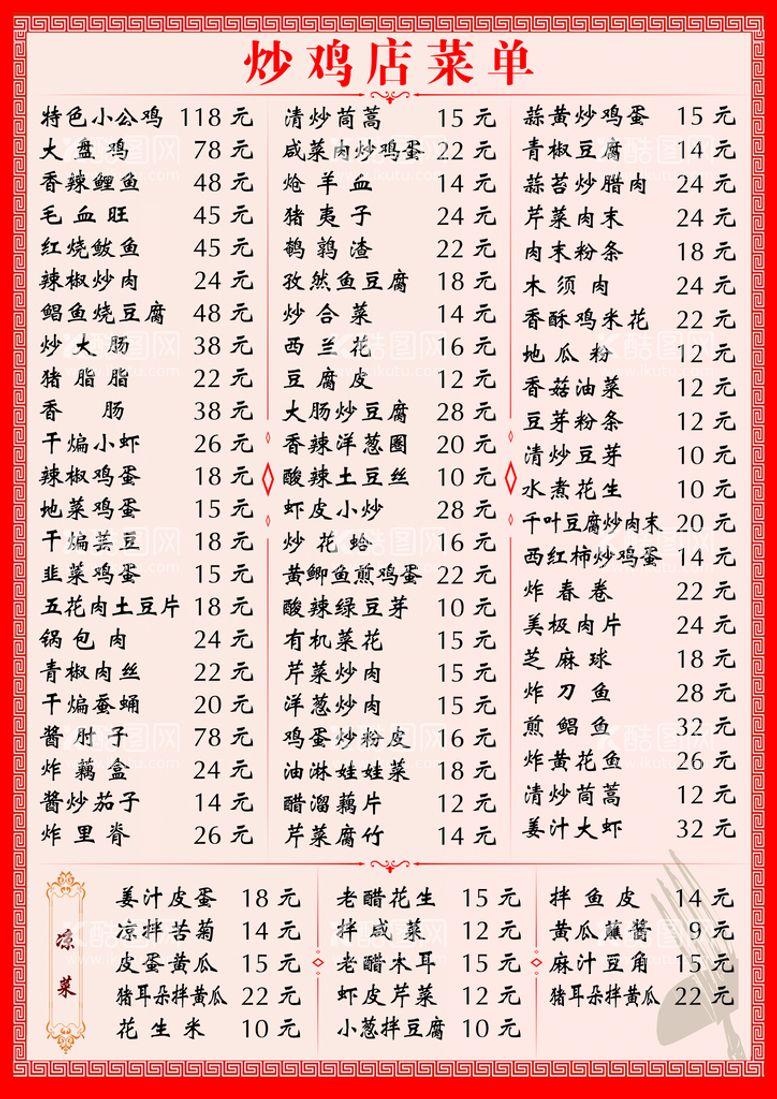 炒鸡店菜单
特色小公鸡 118 元
大盘鸡 78 元
香辣鲤鱼 48 元
毛血旺 45 元
红烧鲅鱼 45 元
辣椒炒肉 24 元
鲳鱼烧豆腐 48 元
炒大肠 38 元
猪脂脂 22 元
香肠 38 元
干煸小虾 26 元
辣椒鸡蛋 18 元
地菜鸡蛋 15 元
干煸芸豆 18 元
韭菜鸡蛋 15 元
五花肉土豆片 18 元
锅包肉 24 元
青椒肉丝 22 元
干煸蚕蛹 20 元
酱肘子 78 元
炸藕盒 24 元
酱炒茄子 14 元
炸里脊 26 元
清炒茼蒿 15 元
咸菜肉炒鸡蛋 22 元
炝羊血 14 元
猪夷子 24 元
鹌鹑渣 22 元
孜然鱼豆腐 18 元
炒合菜 14 元
西兰花 16 元
豆腐皮 12 元
大肠炒豆腐 28 元
香辣洋葱圈 20 元
酸辣土豆丝 10 元
虾皮小炒 28 元
炒花蛤 16 元
黄鲫鱼煎鸡蛋 22 元
酸辣绿豆芽 10 元
有机菜花 15 元
芹菜炒肉 15 元
洋葱炒肉 15 元
鸡蛋炒粉皮 16 元
油淋娃娃菜 18 元
醋溜藕片 12 元
芹菜腐竹 14 元
蒜黄炒鸡蛋 15 元
青椒豆腐 14 元
蒜苔炒腊肉 24 元
芹菜肉末 24 元
肉末粉条 18 元
木须肉 24 元
香酥鸡米花 22 元
地瓜粉 12 元
香菇油菜 12 元
豆芽粉条 12 元
清炒豆芽 10 元
水煮花生 10 元
千叶豆腐炒肉末 20 元
西红柿炒鸡蛋 14 元
炸春卷 22 元
美极肉片 24 元
芝麻球 18 元
炸刀鱼 28 元
煎鲳鱼 32 元
炸黄花鱼 26 元
清炒茼蒿 12 元
姜汁大虾 32 元
凉菜
姜汁皮蛋 18 元
凉拌苦菊 14 元
皮蛋黄瓜 15 元
猪耳朵拌黄瓜 22 元
花生米 10 元
老醋花生 15 元
拌咸菜 12 元
老醋木耳 15 元
虾皮芹菜 12 元
小葱拌豆腐 10 元
拌鱼皮 14 元
黄瓜蘸酱 9 元
麻汁豆角 15 元
猪耳朵拌黄瓜 22 元